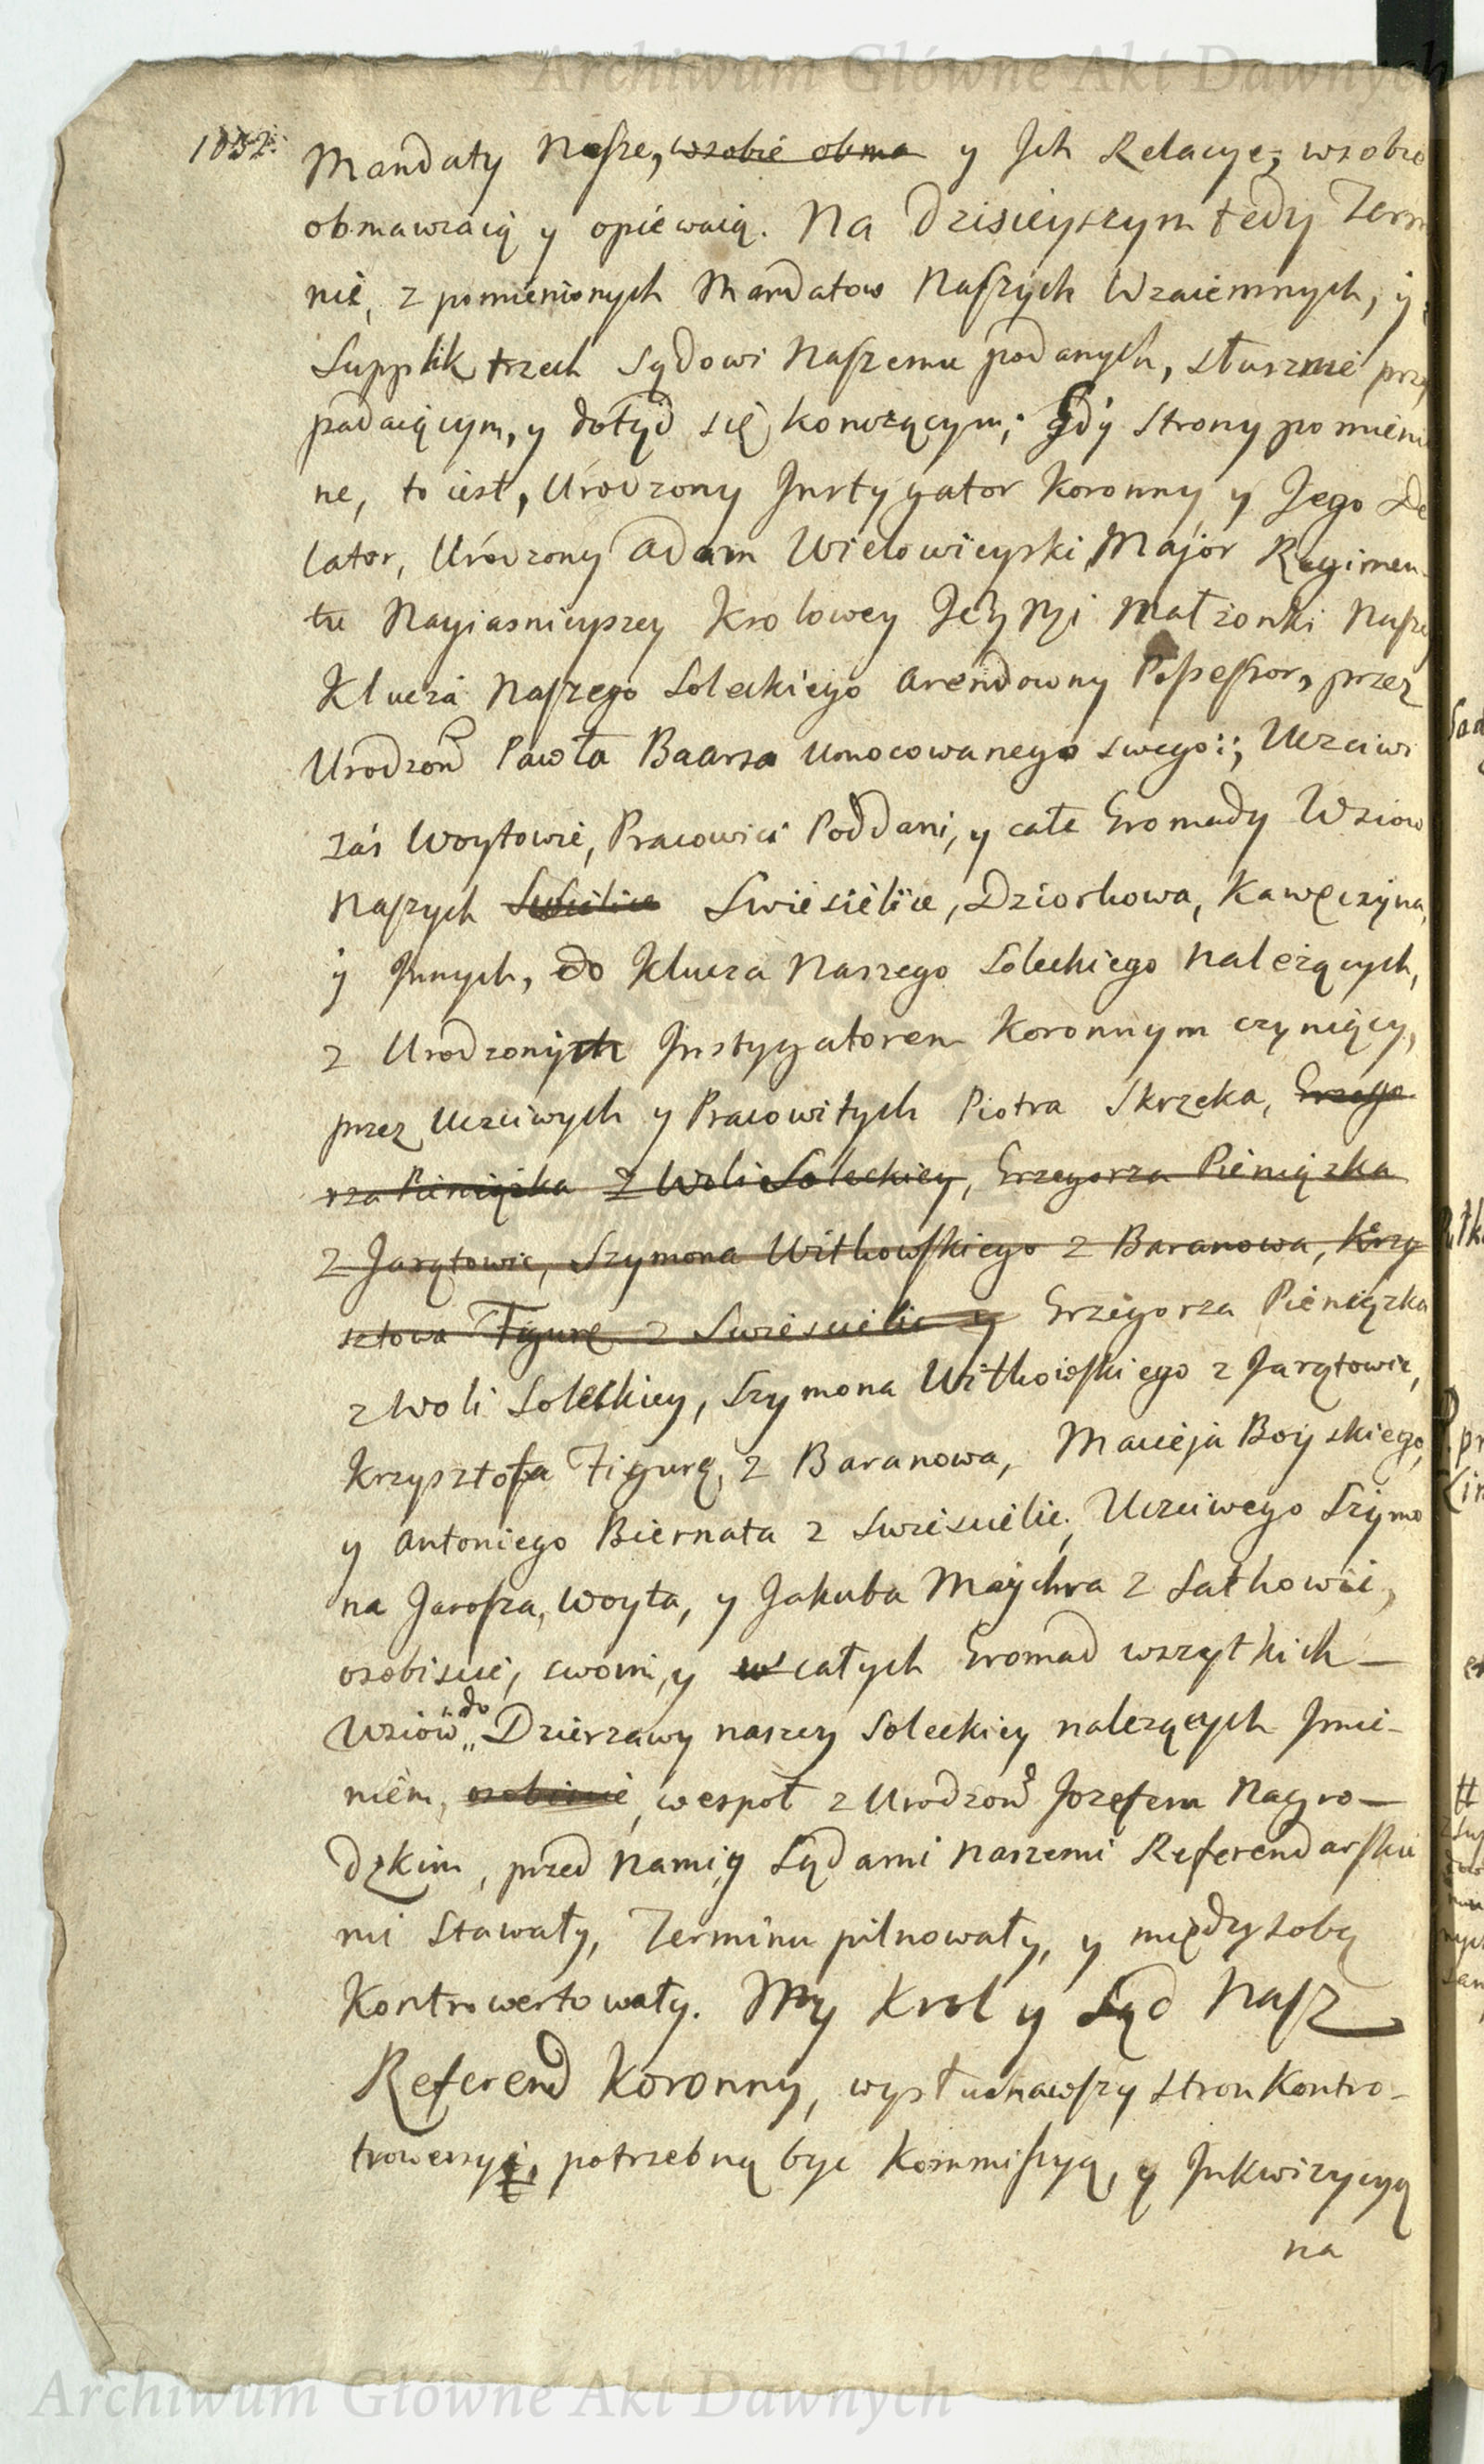 Archiwum Główne Akt Dawnych
1032.
Mandaty Nasze, wsobie obma y Ich Relacye, wsobie
obmawiaią y opiewaią. Na Dzisieyszym tedy Term
nie, z pomienionych Mandatow Naszych Wzaiemnych, y z
Supplik trzech Sądowi Naszemu podanych, słusznie przy
padaiącym, y dotąd się konczącym; Gdy Strony pomienio
ne, to iest, Urodzony Instygator Koronny y Jego De
lator, Urodzony Adam Wielowieyski Major Regimen-
tu Nayiasnieyszey Krolowey Jey Mci Małżonki Naszey
Klucza Naszego Soleckiego Arendowny Possessor, przez
Urodzon Pawła Baarsa Umocowanego swego; Uczciwi
zaś Woytowie, Pracowici Poddani, y całe Gromady Wsiow
Naszych Swiesielice, Dziorkowa, Kawęczyna,
y Innych, do Klucza Naszego Soleckiego należących,
z Urodzonych Instygatorem Koronnym czyniący,
przez Uczciwych y Pracowitych Piotra Skrzeka, Grzego
rza Pieniązka z Woli Soleckiey, Grzegorza Pieniązka
z Jarątowic, Szymona Witkowskiego z Baranowa, Krzy
sztowa Figurę z Swiesielic y Grzegorza Pieniązka
z Woli Soleckiey, Szymona Witkowskiego z Jarątowic,
Krzysztofa Figurę, z Baranowa, Macieja Boyskiego,
y Antoniego Biernata z Swiesielic, Uczciwego Szymo
na Jarosza, Woyta, y Jakuba Maychra z Sathowic,
osobiscie, swoim, y w całych Gromad wszytkich –
Wsiow do Dzierzawy naszey Soleckiey nalezących Imie-
niem, osobiscie, wespoł z Urodzon Jozefem Nagro–
dzkim, przed Nami y Sądami naszemi Referendarskie
mi stawały, Terminu pilnowały, y między sobą
Kontrowertowały. My Krol y Sąd Nasz
Referend Koronny, wysłuchawszy stron Kontro-
trowersyi, potrzebną byc Kommissyą, y Inkwizycyą
na
Archiwum Główne Akt Dawnych